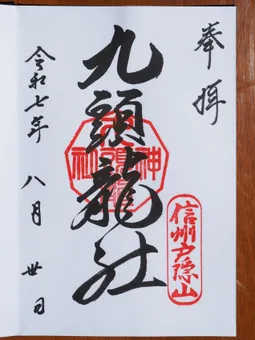 奉拝
九頭龍社
信州戸隠山
令和七年 八月 卅日